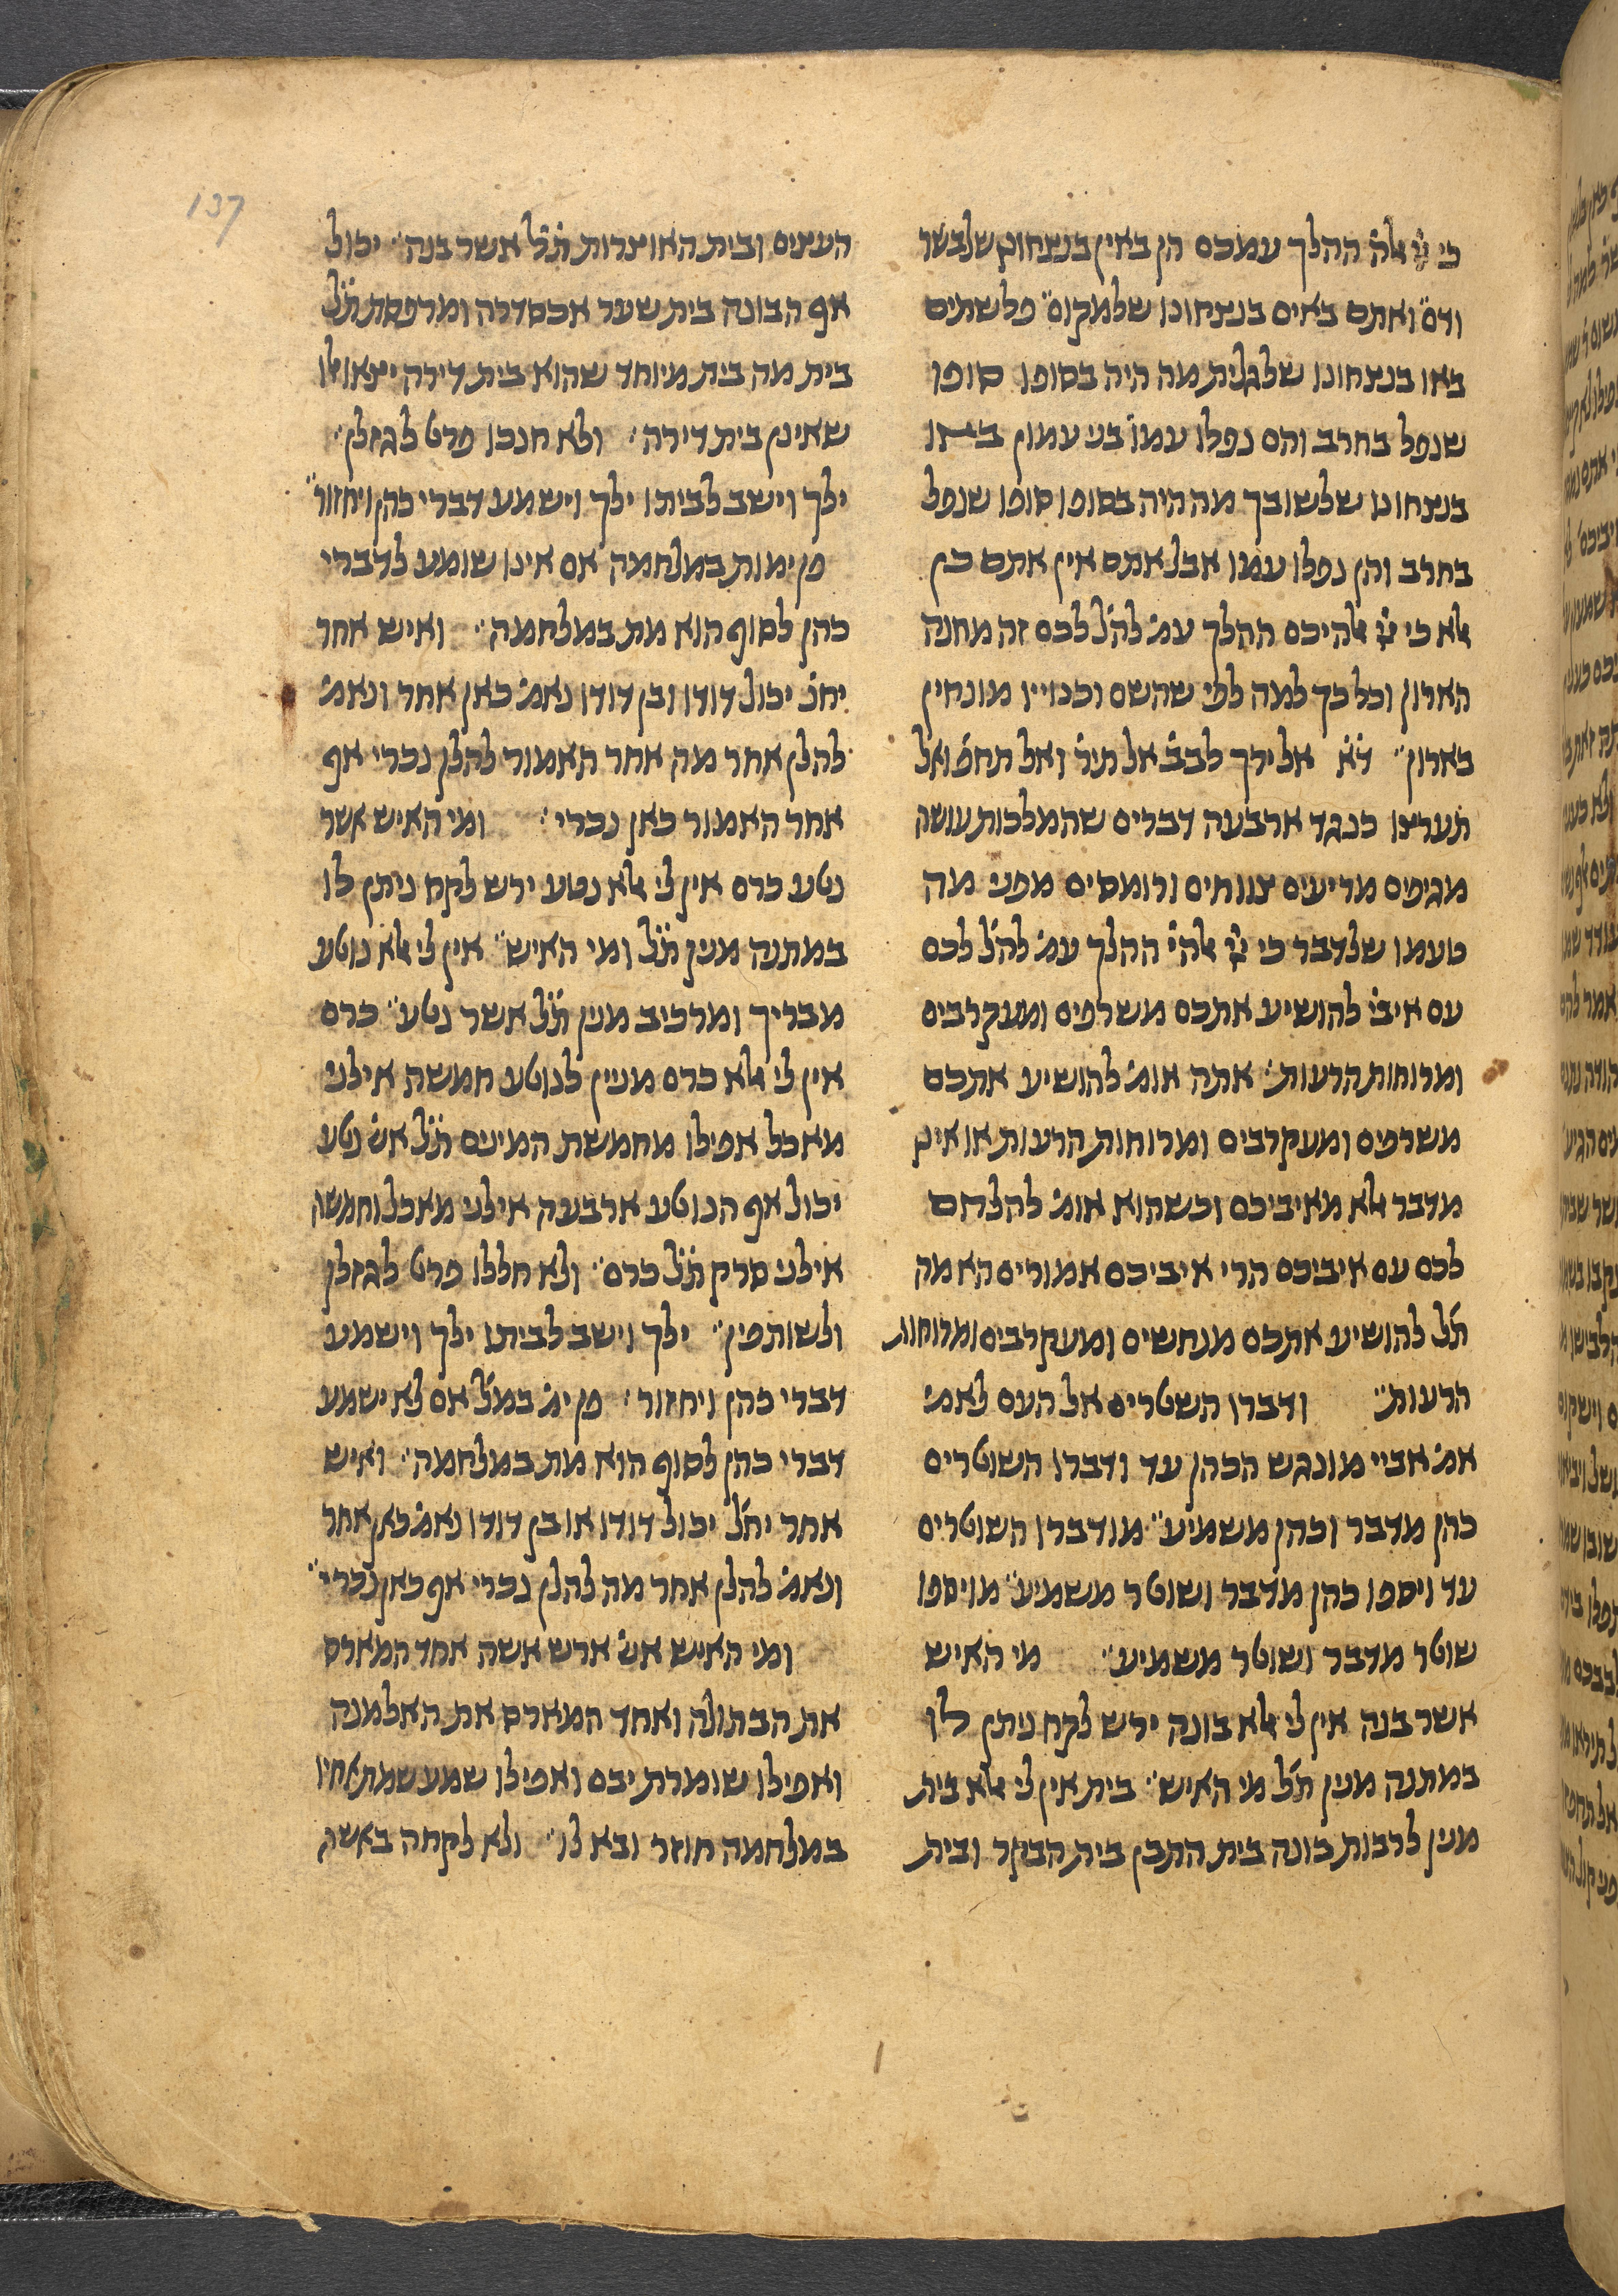 137
כי יי אלה ההלך עמכם הן באין בנצחונן שלבשר
ודם ואתם באים בנצחונו שלמקום פלשתים
באו בנצחונו שלגלית מה היה בסופו סופו
שנפל בחרב והם נפלו עמו בני עמון באו
בנצחונו שלשובך מה היה בסופו סופו שנפל
בחרב והן נפלו עמו אבל אתם אין אתם כן
אלא כי יי אלהיכם ההלך עמ להל לכם זה מחנה
הארון וכל כך למה לפי שהשם וכנוייו מונחין
בארון דא אל ירך לבב אל תיר ואל תחפ ואל
תערצו כנגד ארבעה דברים שהמלכות עושה
מגיפים מריעים צווחים ורומסים מפני מה
טעמו שלדבר כי יי אלהי ההלך עמ להל לכם
עם איבי להושיע אתכם משרפים ומעקרבים
ומרוחות הרעות אתה אומ להושיע אתכם
משרפים ומעקרבים ומרוחות הרעות או אינו
מדבר אלא מאיביכם וכשהוא אומ להלחם
לכם עם איביכם הרי איביכם אמורים הא מה
תל להושיע אתכם מנחשים ומעקרבים ומרוחות
הרעות ודברו השטרים אל העם לאמ
אמ אביי מונגש הכהן עד ודברו השוטרים
כהן מדבר וכהן משמיע מודברו השוטרים
עד ויספו כהן מדבר ושוטר משמיע מויספו
שוטר מדבר ושוטר משמיע מי האיש
אשר בנה אין לי אלא בונה ירש לקח ניתן לו
במתנה מנין תל מי האיש בית אין לי אלא בית
מנין לרבות בונה בית התבן בית הבקר ובית
העצים ובית האוצרות תל אשר בנה יכול
אף הבונה בית שער אכסדרה ומרפסת תל
בית מה בית מיוחד שהוא בית דירה יצאו אלו
שאינן בית דירה ולא חנכו פרט לגזלן
ילך וישב לביתו ילך וישמע דברי כהן ויחזור
פן ימות במלחמה אם אינו שומע לדברי
כהן לסוף הוא מת במלחמה ואיש אחר
יחנ יכול דודו ובן דודו נאמ כאן אחר ונאמ
להלן אחר מה אחר האמור להלן נכרי אף
אחר האמור כאן נכרי ומי האיש אשר
נטע כרם אין לי אלא נטע ירש לקח ניתן לו
במתנה מנין תל ומי האיש אין לי אלא נוטע
מבריך ומרכיב מנין תל אשר נטע כרם
אין לי אלא כרם מניין לנוטע חמשה אילני
מאכל אפילו מחמשת המינים תל אש נטע
יכול אף הנוטע ארבעה אילני מאכל וחמשה
אילני סרק תל כרם ולא חללו פרט לגזלן
ולשותפין ילך וישב לביתו ילך וישמע
דברי כהן ויחזור פן ימ במל אם לא ישמע
דברי כהן לסוף הוא מת במלחמה ואיש
אחר יחל יכול דודו או בן דודו נאמ כאן אחר
ונאמ להלן אחר מה להלן נכרי אף כאן נכרי
ומי האיש אש ארש אשה אחד המארס
את הבתולה ואחד המארס את האלמנה
ואפילו שומרת יבם ואפילו שמע שמת אחיו
במלחמה חוזר ובא לו ולא לקחה באשה